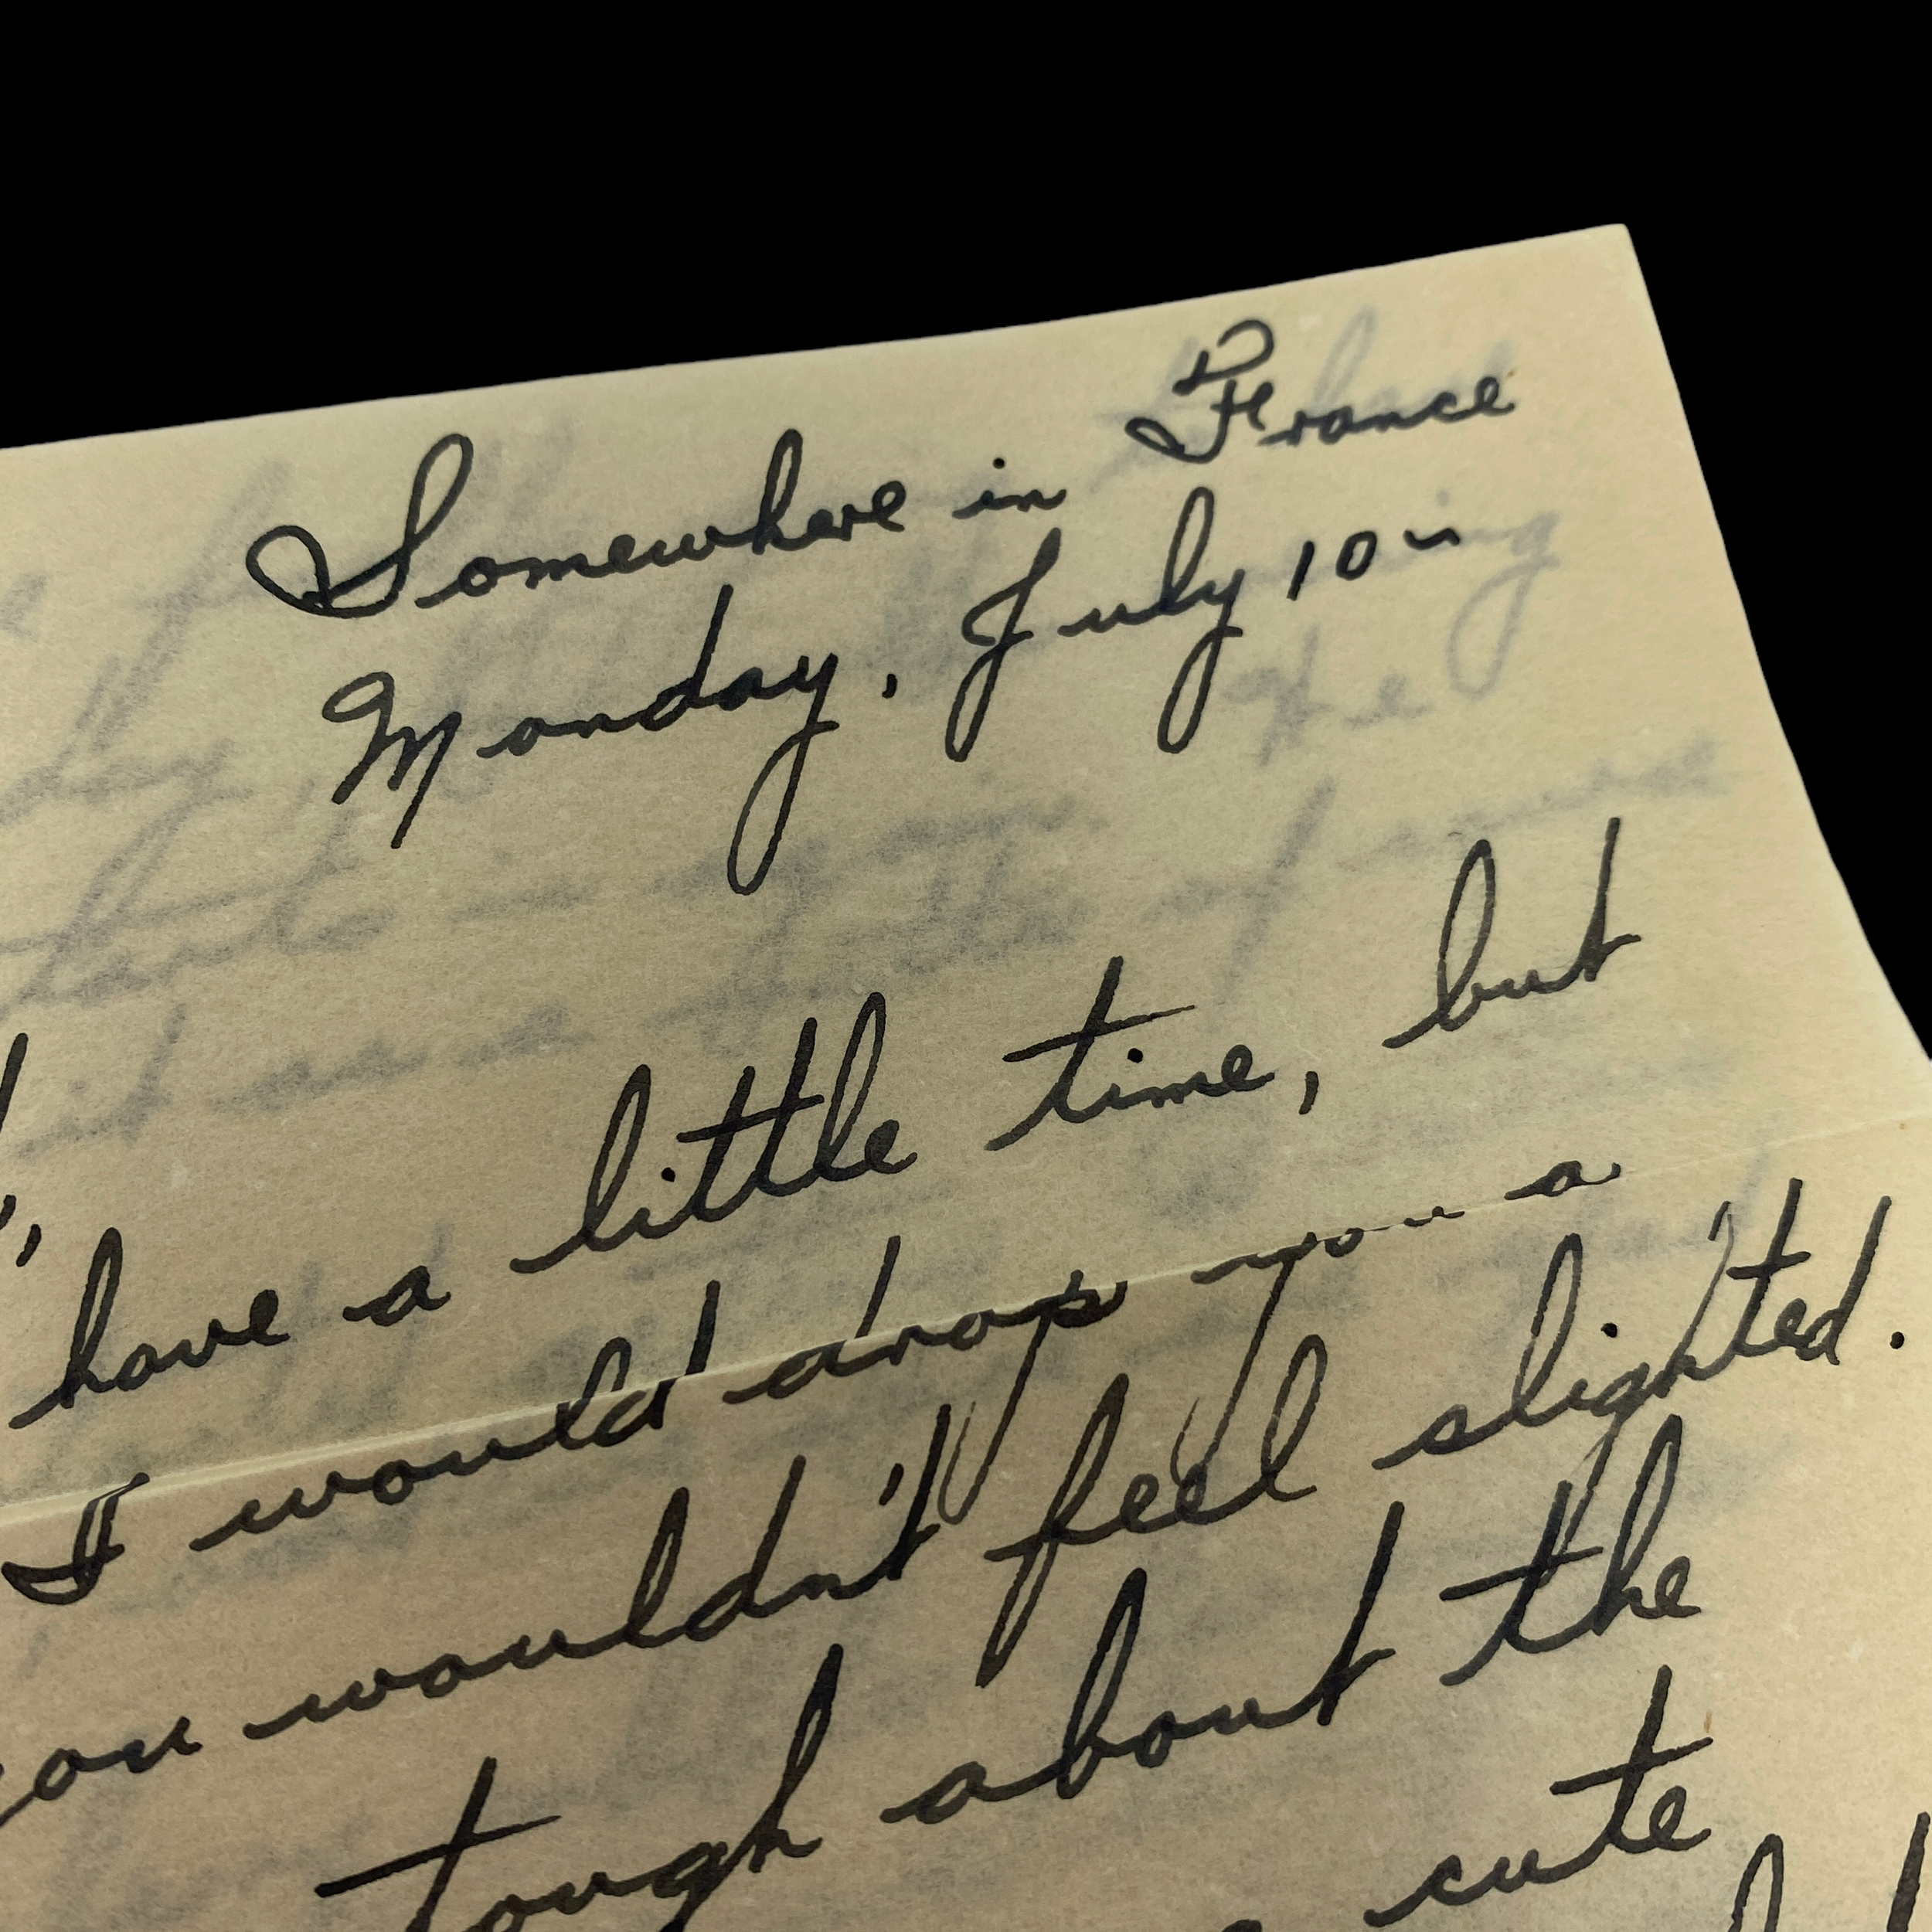 Somewhere in France
Monday, July 10
have a little time, but
I would drop you a
wouldn't feel slighted.
tough about the
cute